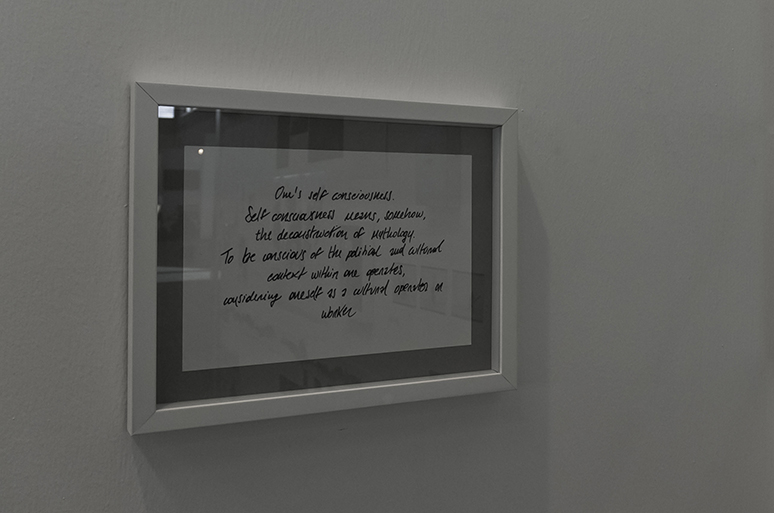 One's self consciousness.
Self consciousness means, somehow,
the deconstruction of mythology.
To be conscious of the political and cultural
context within one operates,
considering oneself as a cultural operator or
worker